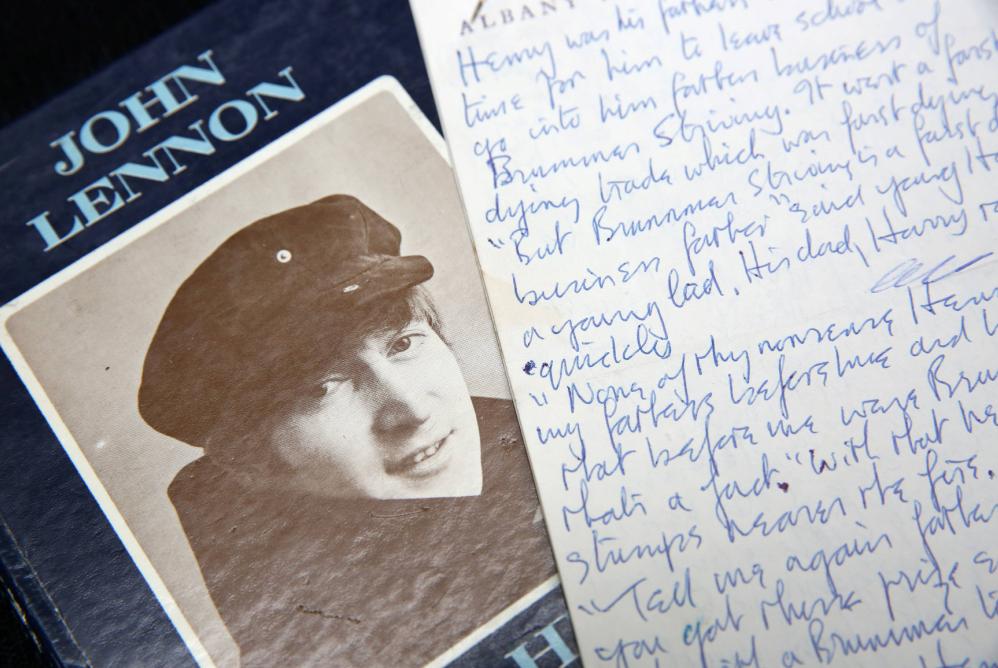 JOHN
LENNON
H
ALBANY
Henry was his fathers
time for him to leave school
go into him fathers business of
Brummer Striving. It went a farst
dying trade which was farst dying
"But Brummer Striving is a farst d
business farther" said young He
a young lad. His dad, Harry r
quickly
"None of thy nonsense Hen
my farthers before me and
that before me were Bru
thats a fact." With that he
stumps nearer the fire.
"Tell me again farther
you got there prize
a Brummer